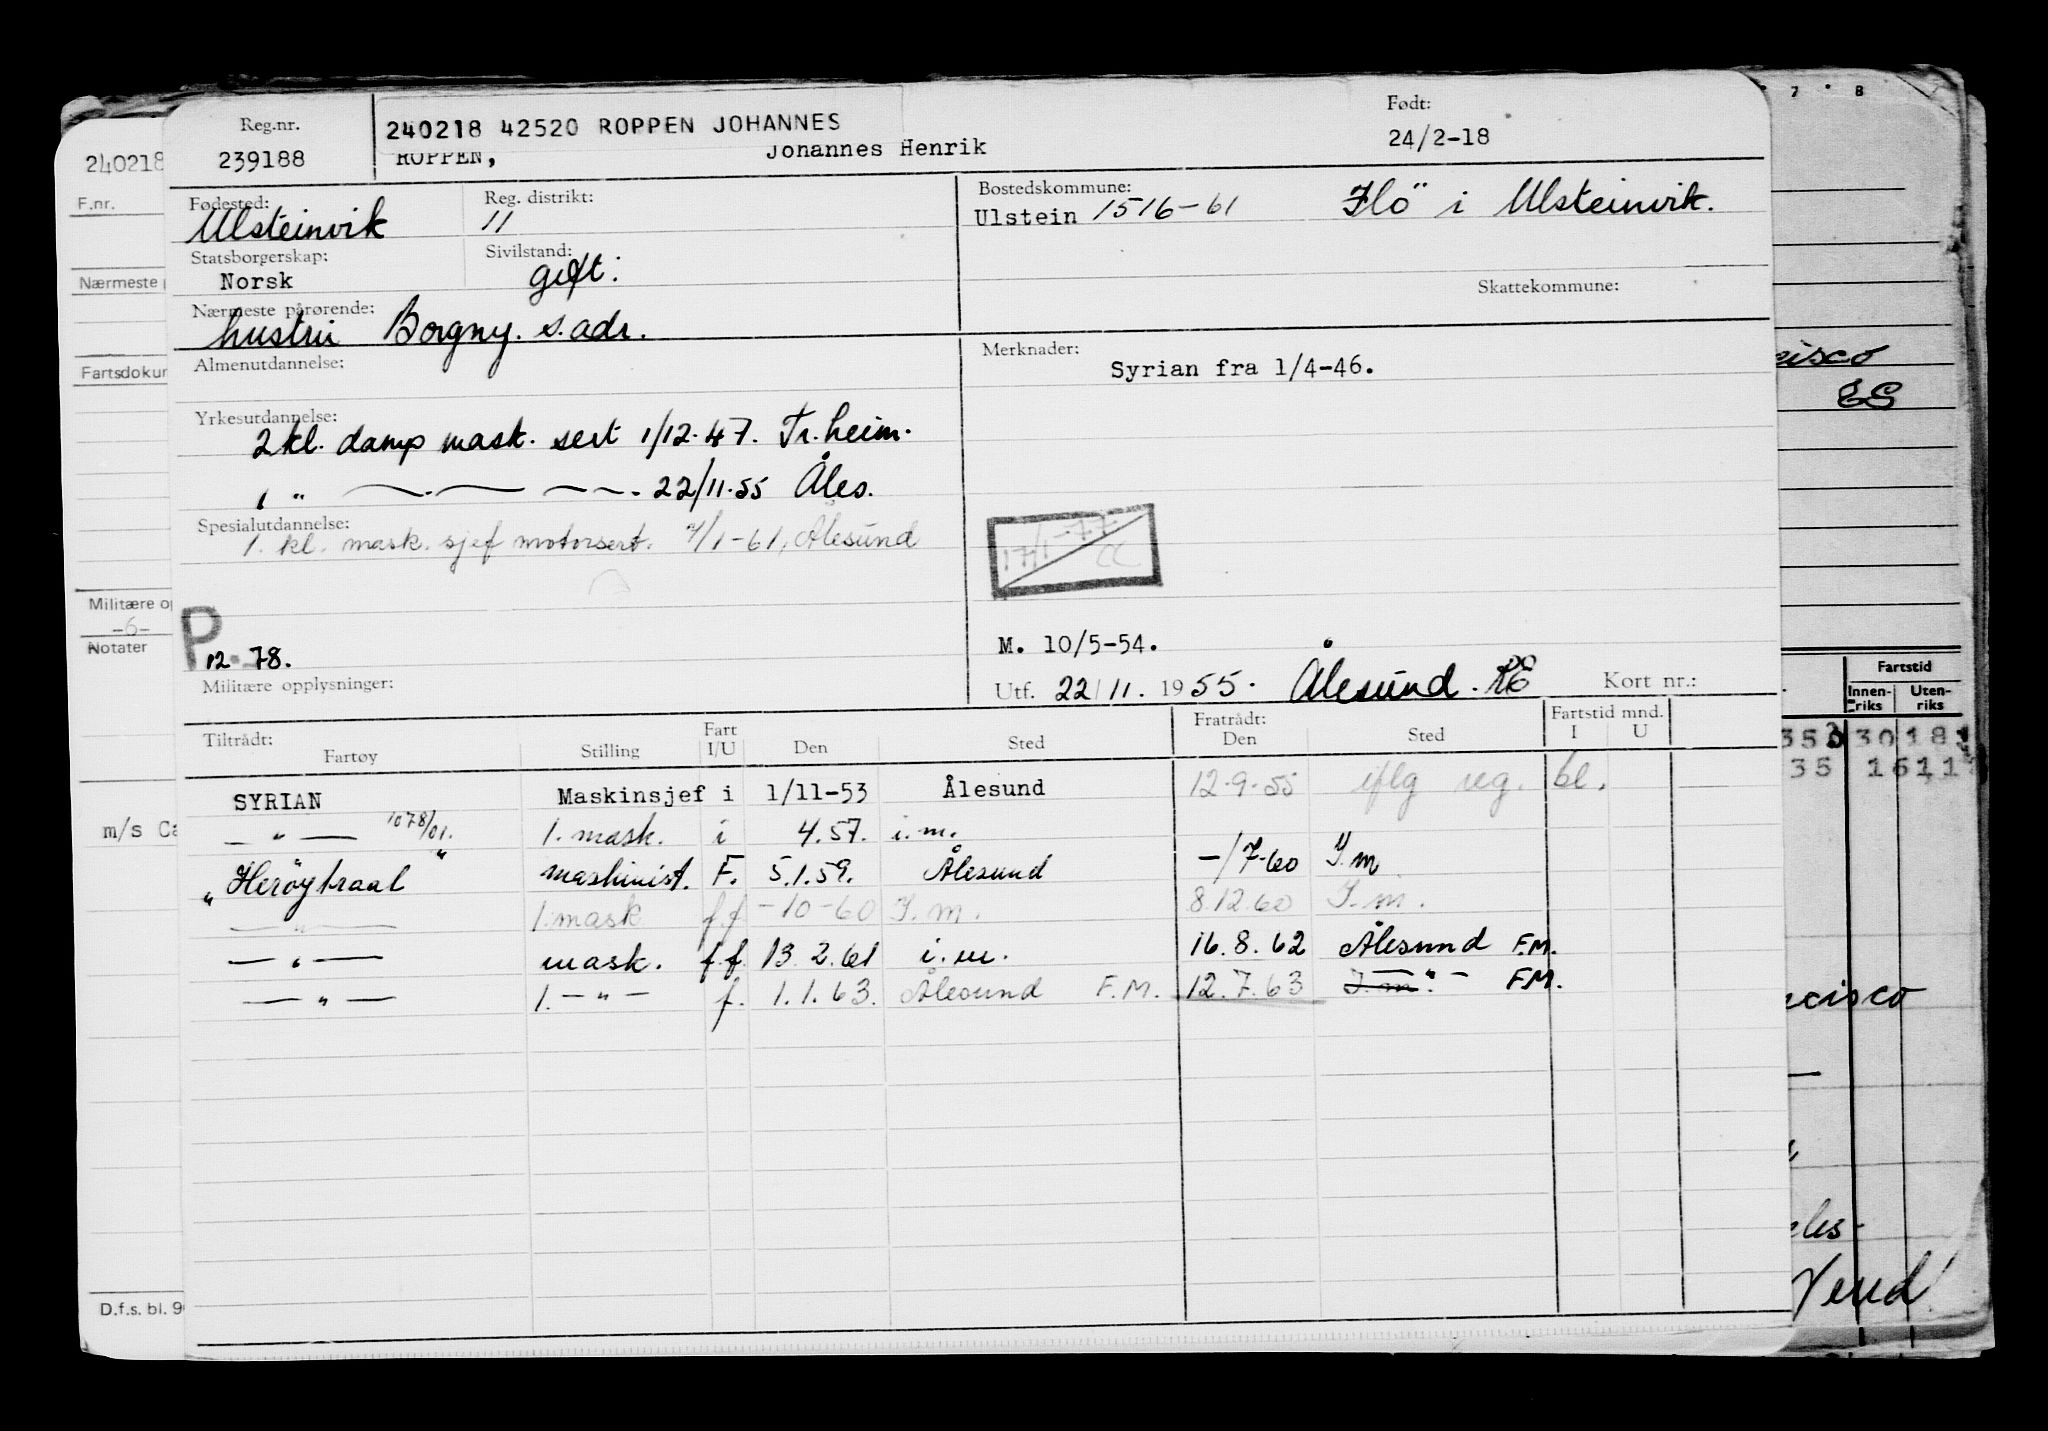 Reg.nr.
239188
240218 42520 ROPPEN JOHANNES
ROPPEN, Johannes Henrik
Født:
24/2-18
Fødested:
Ulsteinvik
Reg. distrikt:
11
Bostedskommune:
Ulstein 1516-61 Flö i Ulsteinvik.
Statsborgerskap:
Norsk
Sivilstand:
gift.
Skattekommune:
Nærmeste pårørende:
hustru Borgny. s. adr.
Almenutdannelse:
Merknader:
Syrian fra 1/4-46.
Yrkesutdannelse:
2 kl. damp mask. sert 1/12.47. Tr.heim.
1 " — . — — . 22/11.55 Åles.
Spesialutdannelse:
1. kl. mask. sjef motorsert. 4/1-61, Ålesund
17/1-77
CC
P
12 78.
M. 10/5-54.
Militære opplysninger:
Utf. 22/11. 1955. Ålesund. Kort nr.:
Tiltrådt:
Fartøy Stilling Fart I/U Den Sted
Fratrådt:
Den Sted
Fartstid mnd.
I U
SYRIAN Maskinsjef i 1/11-53 Ålesund 12-9-55 iflg reg. bl.
— " — 1078/01. 1. mask. i 4.57. i.m.
"Herøytraal" maskinist. F. 5.1.59. Ålesund -/7-60 I.m
— " — 1. mask f.f. -10-60 I.m. 8.12.60 I.m.
— " — mask. f.f. 13.2.61 i.m. 16.8.62 Ålesund F.M.
— " — 1. — " — f. 1.1.63. Ålesund F.M. 12.7.63 — " — F.M.
240218
F.nr.
Nærmeste
Fartsdokum
Militære op
-6-
Notater
m/s Ca
D.f.s. bl. 9
7 8
cisco
ES
Fartstid
Innenriks Utenriks
353 30 181
35 1611
ncisco